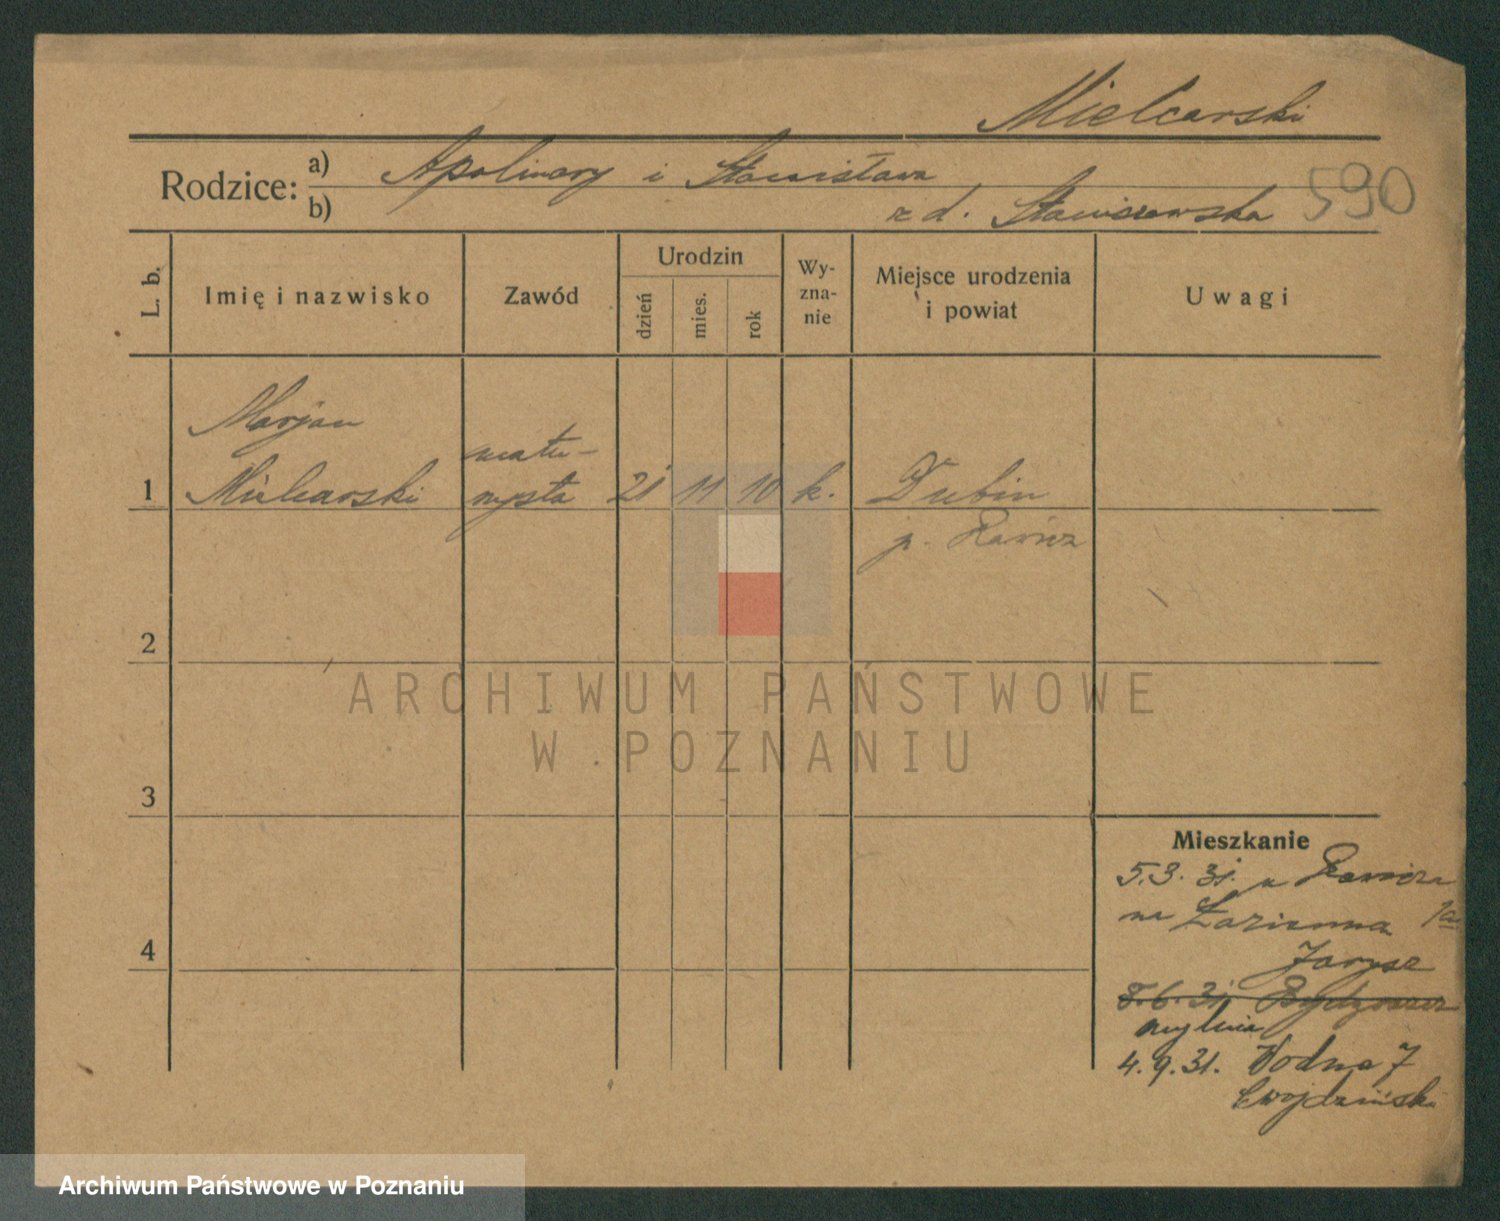 Mielcarski
Rodzice:
a) Apolinary i Stanisława
b) z d. Staniszewska 590
L. b.
Imię i nazwisko
Zawód
Urodzin
dzień
mies.
rok
Wy-
zna-
nie
Miejsce urodzenia
i powiat
Uwagi
Marjan
matu-
1 Mielcarski rzysta 21 11 10 k. Dubin
p. Rawicz
2
3
4
Mieszkanie
5.3.31. z Rawicza
na Łazienna 1a
Jarysz
8.6.31. Bydgoszcz
mylnie
4.9.31. Wodna 7
Cwojdziński
ARCHIWUM PAŃSTWOWE
W POZNANIU
Archiwum Państwowe w Poznaniu